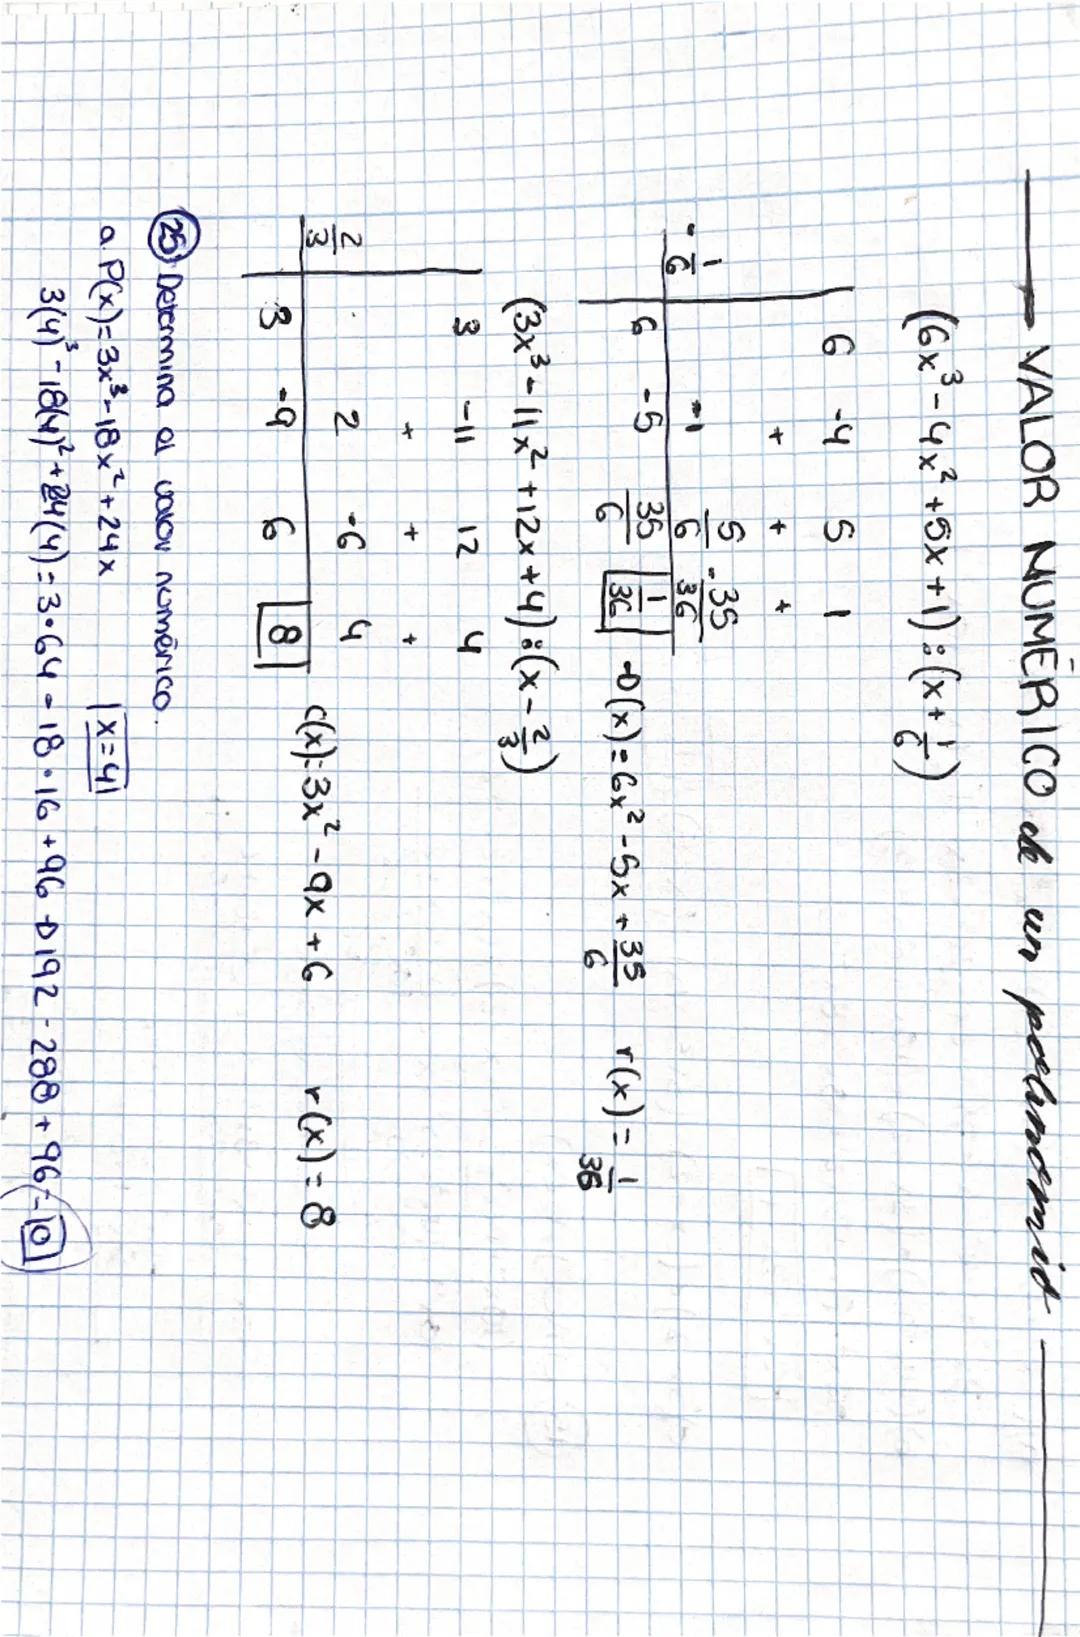 VALOR NUMÉRICO de un polinomio
(6x³ - 4x² + 5x + 1) : (x + 1/6)
6 -4 5 1
+ + +
-1/6 -1 5/6 -35/36
6 -5 35/6 1/36 → (x) = 6x² - 5x + 35/6 r(x) = 1/36
(3x³ - 11x² + 12x + 4) : (x - 2/3)
3 -11 12 4
+ + +
2/3 2 -6 4
3 -9 6 8 c(x) = 3x² - 9x + 6 r(x) = 8
25) Determina el valor numérico.
a. P(x) = 3x³ - 18x² + 24x x = 4
3(4)³ - 18(4)² + 24(4) = 3·64 - 18·16 + 96 → 192 - 288 + 96 = 0